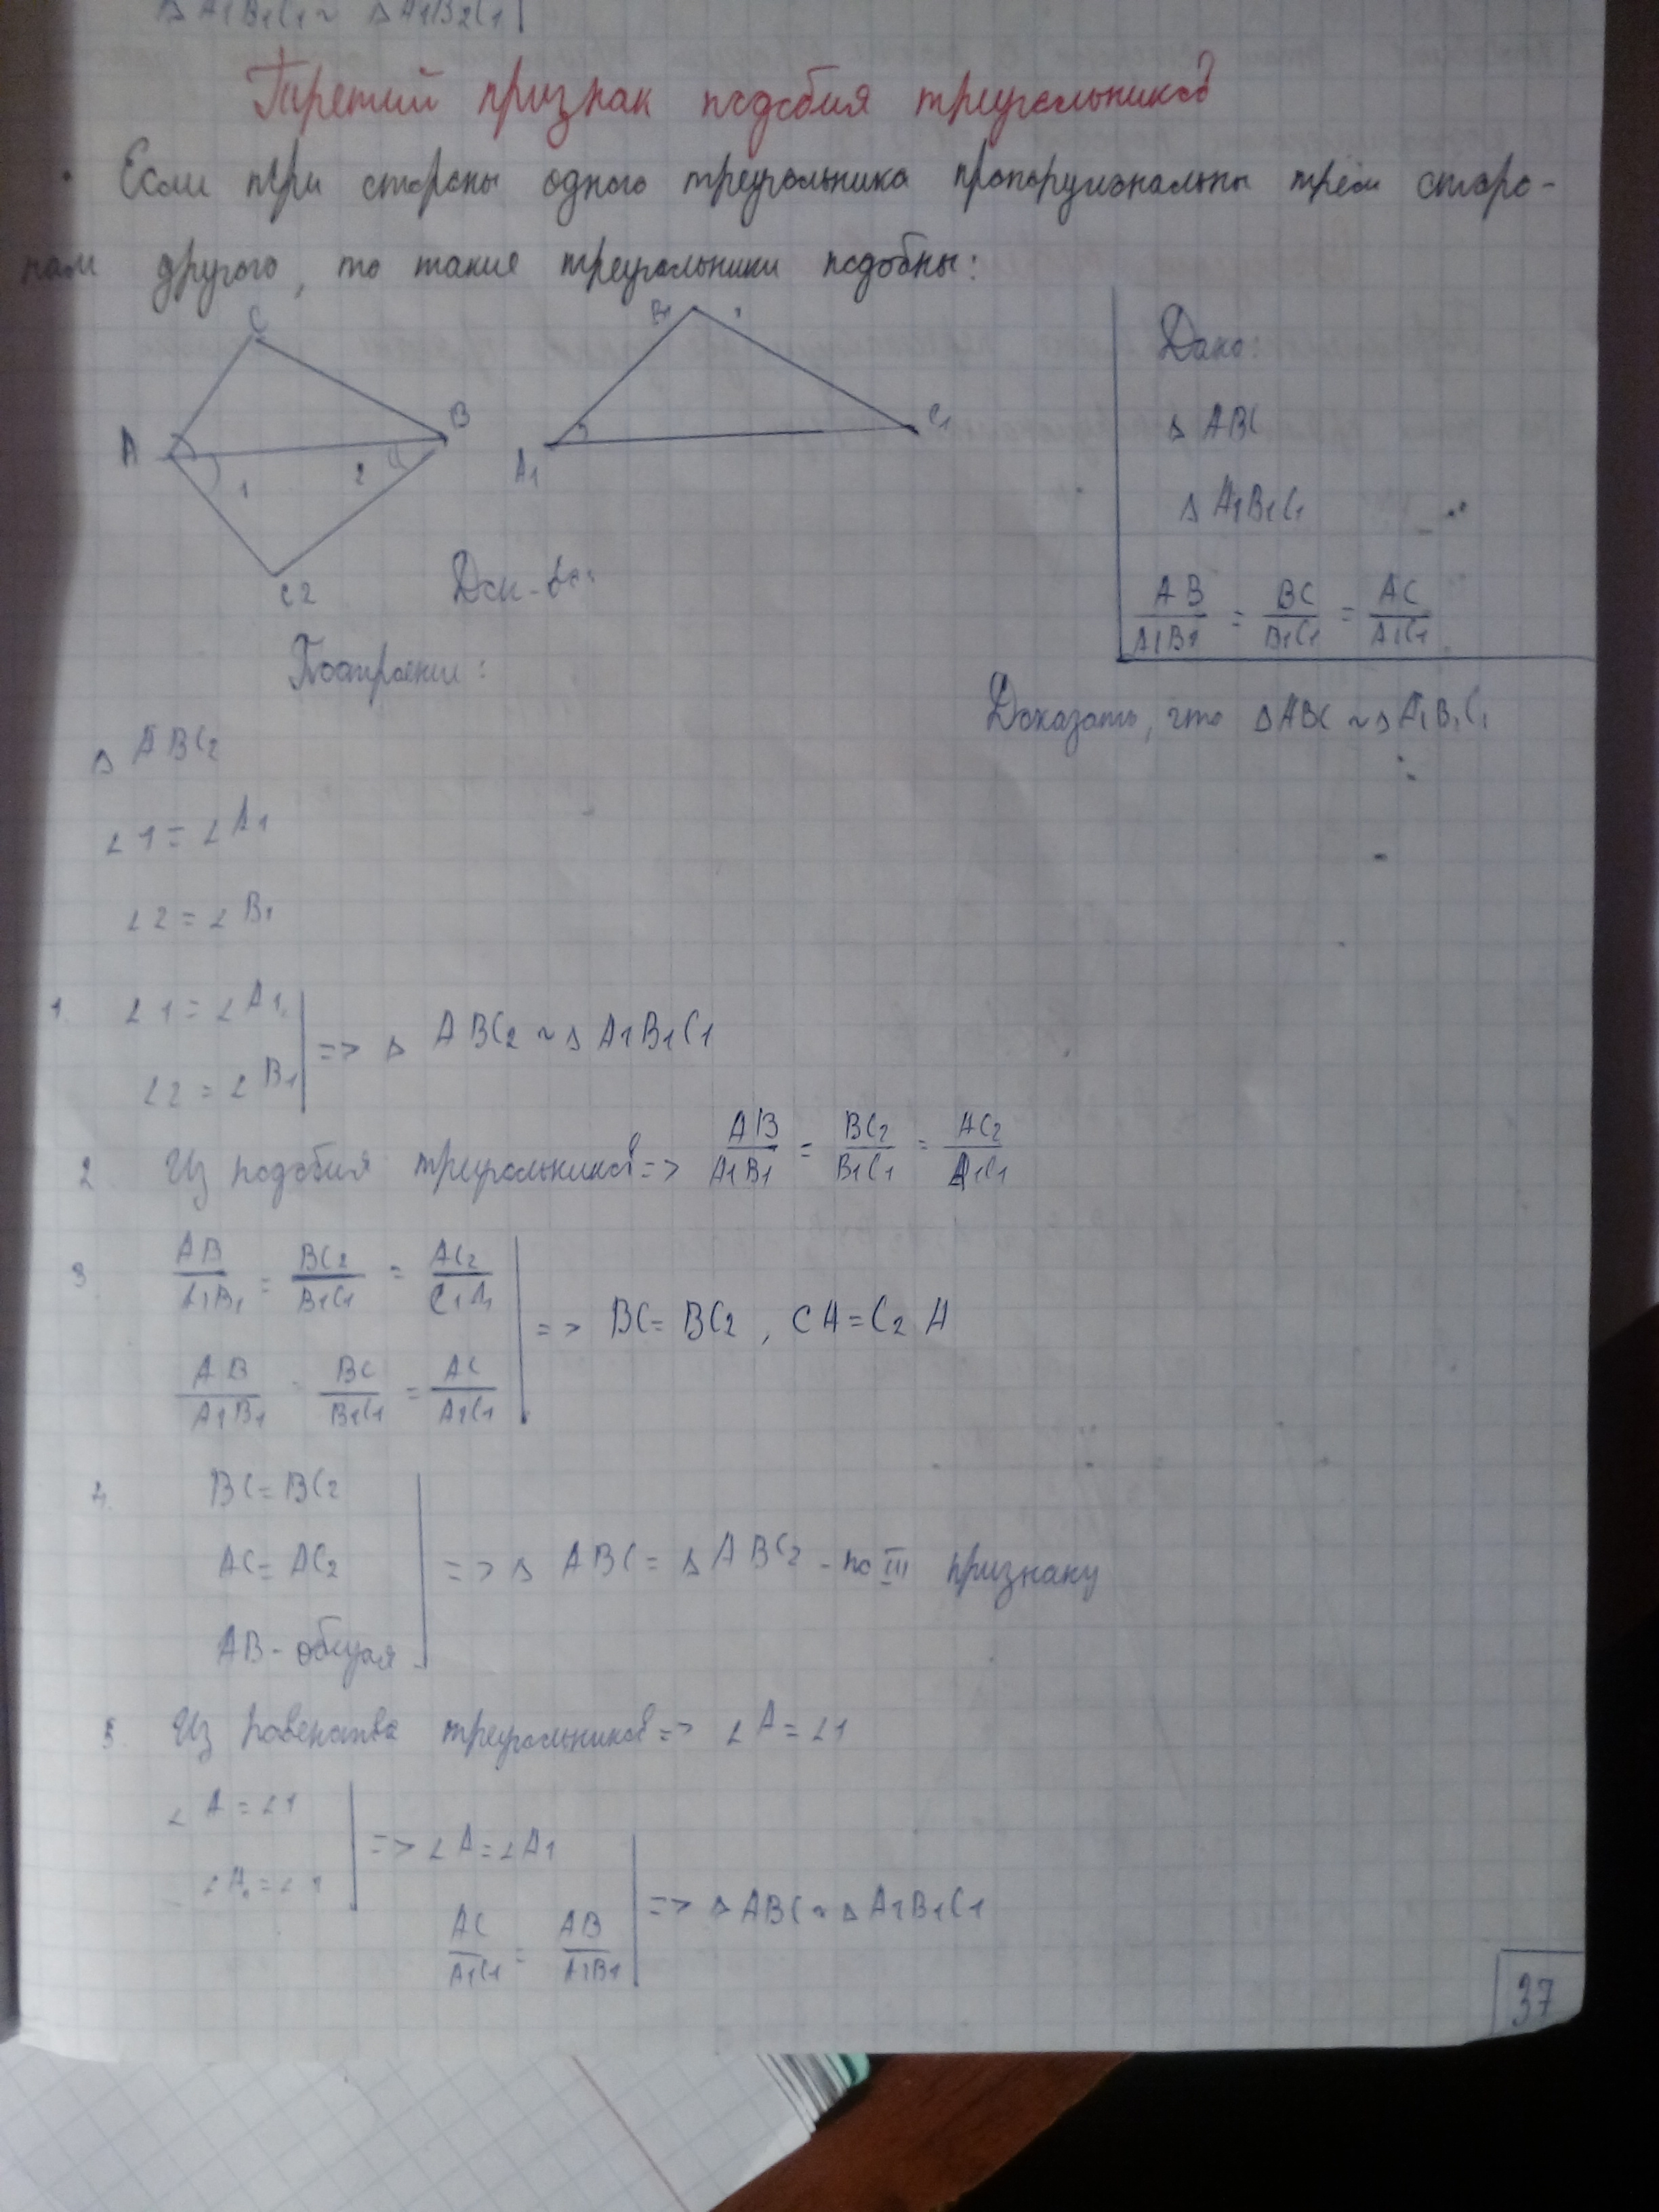 Δ A1B1C1 ~ Δ A1B2C1
Третий признак подобия треугольников
• Если три стороны одного треугольника пропорциональны трём сторо-
нам другого, то такие треугольники подобны:
C
B
A
1
2
C2
B1
C1
A1
Дано:
Δ ABC
Δ A1B1C1
AB/A1B1 = BC/B1C1 = AC/A1C1
Доказать, что Δ ABC ~ Δ A1B1C1
Док-во:
Построени:
Δ ABC2
∠1 = ∠A1
∠2 = ∠B1
1. ∠1 = ∠A1
∠2 = ∠B1
=> Δ ABC2 ~ Δ A1B1C1
2. Из подобия треугольников => AB/A1B1 = BC2/B1C1 = AC2/A1C1
3. AB/A1B1 = BC2/B1C1 = AC2/C1A1
AB/A1B1 = BC/B1C1 = AC/A1C1
=> BC = BC2, CA = C2A
4. BC = BC2
AC = AC2
AB - общая
=> Δ ABC = Δ ABC2 - по III признаку
5. Из равенства треугольников => ∠A = ∠1
∠A = ∠1
∠A1 = ∠1
=> ∠A = ∠A1
AC/A1C1 = AB/A1B1
=> Δ ABC ~ Δ A1B1C1
37